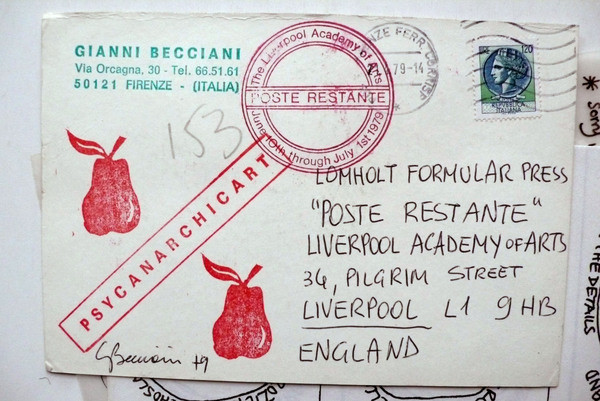 GIANNI BECCIANI
Via Orcagna, 30 - Tel. 66.51.61
50121 FIRENZE - (ITALIA)
The Liverpool Academy of Arts
POSTE RESTANTE
June 10th through July 1st 1979
FERR.
79-14
120
REPUBBLICA
ITALIANA
153
PSYCANARCHICART
LOMHOLT FORMULAR PRESS
"POSTE RESTANTE"
LIVERPOOL ACADEMY OF ARTS
34, PILGRIM STREET
LIVERPOOL L1 9HB
ENGLAND
GBecciani 79
* Sorry
DETAILS